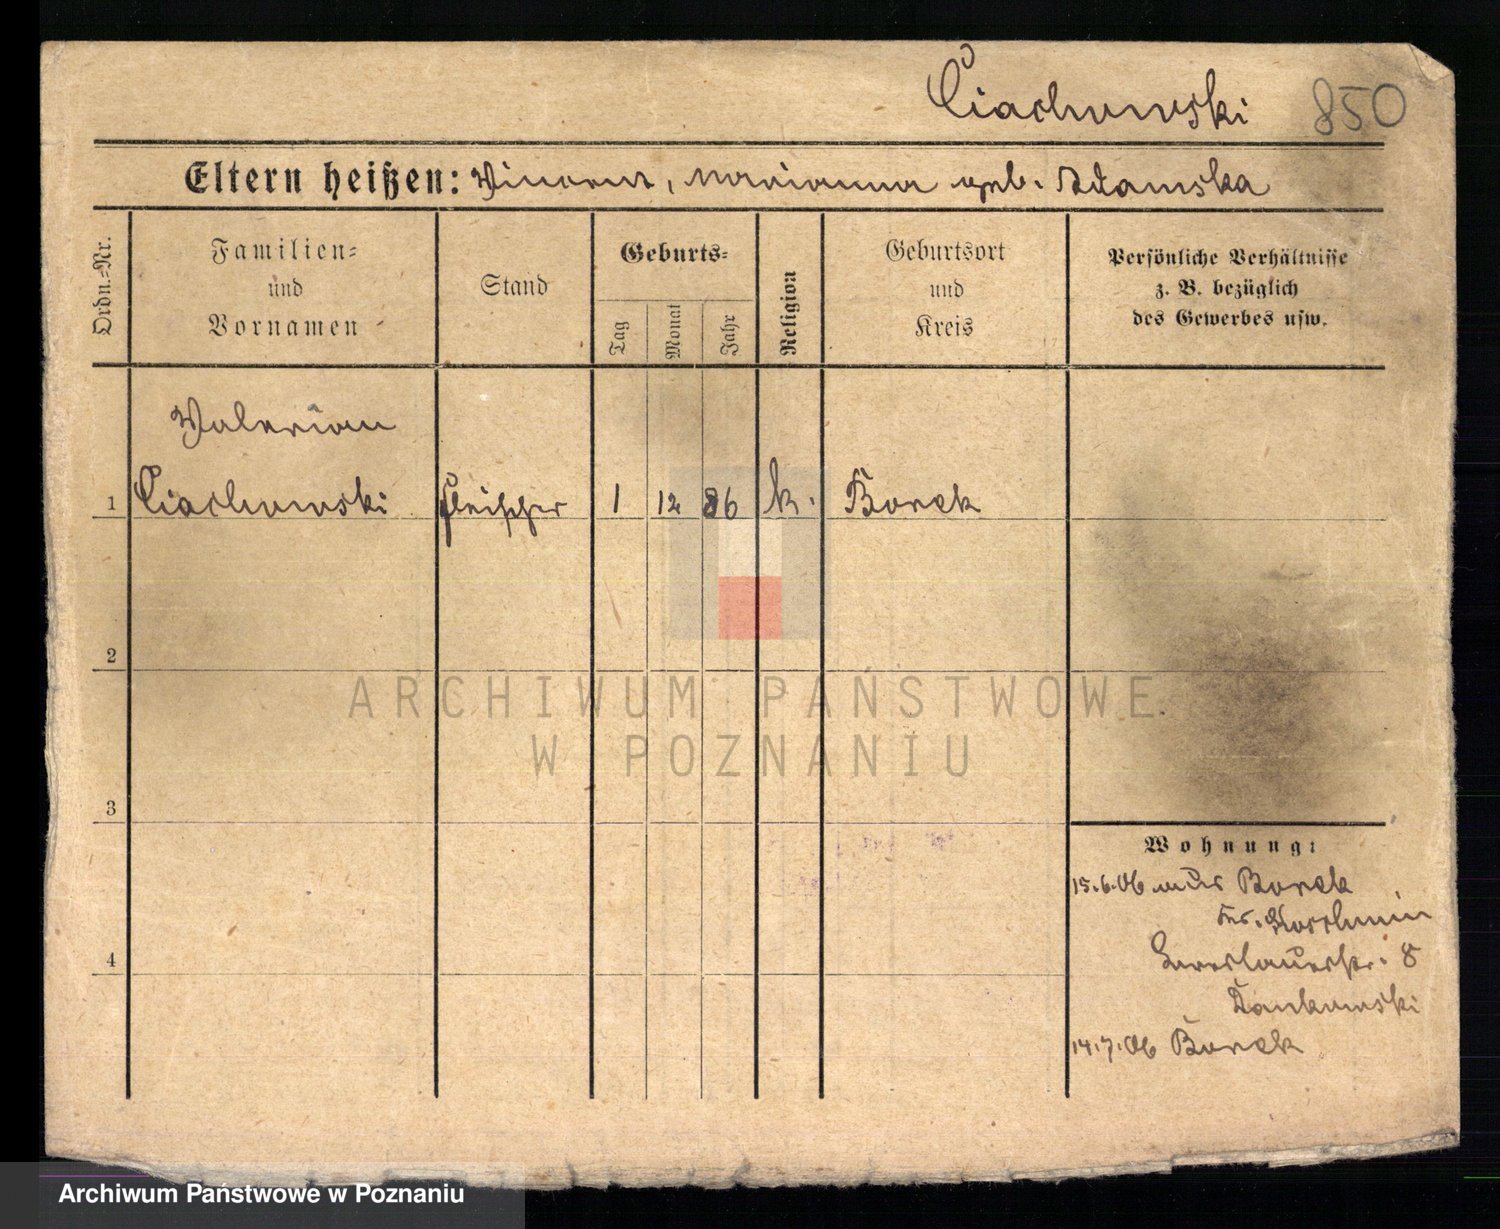 Ciachowski 850
Eltern heißen: Vincent, Marianna geb. Adamska
Ordn.-Nr.
Familien-
und
Vornamen
Stand
Geburts-
Tag
Monat
Jahr
Religion
Geburtsort
und
Kreis
Persönliche Verhältnisse
z. B. bezüglich
des Gewerbes usw.
Valerian
1 Ciachowski Fleischer 1 12 86 k. Borek
2
3
4
Wohnung:
15.6.06 aus Borek
Kr. Koschmin
Breslauerstr. 8
Dankowski
14.7.06 Borek
ARCHIWUM PAŃSTWOWE
W POZNANIU
Archiwum Państwowe w Poznaniu